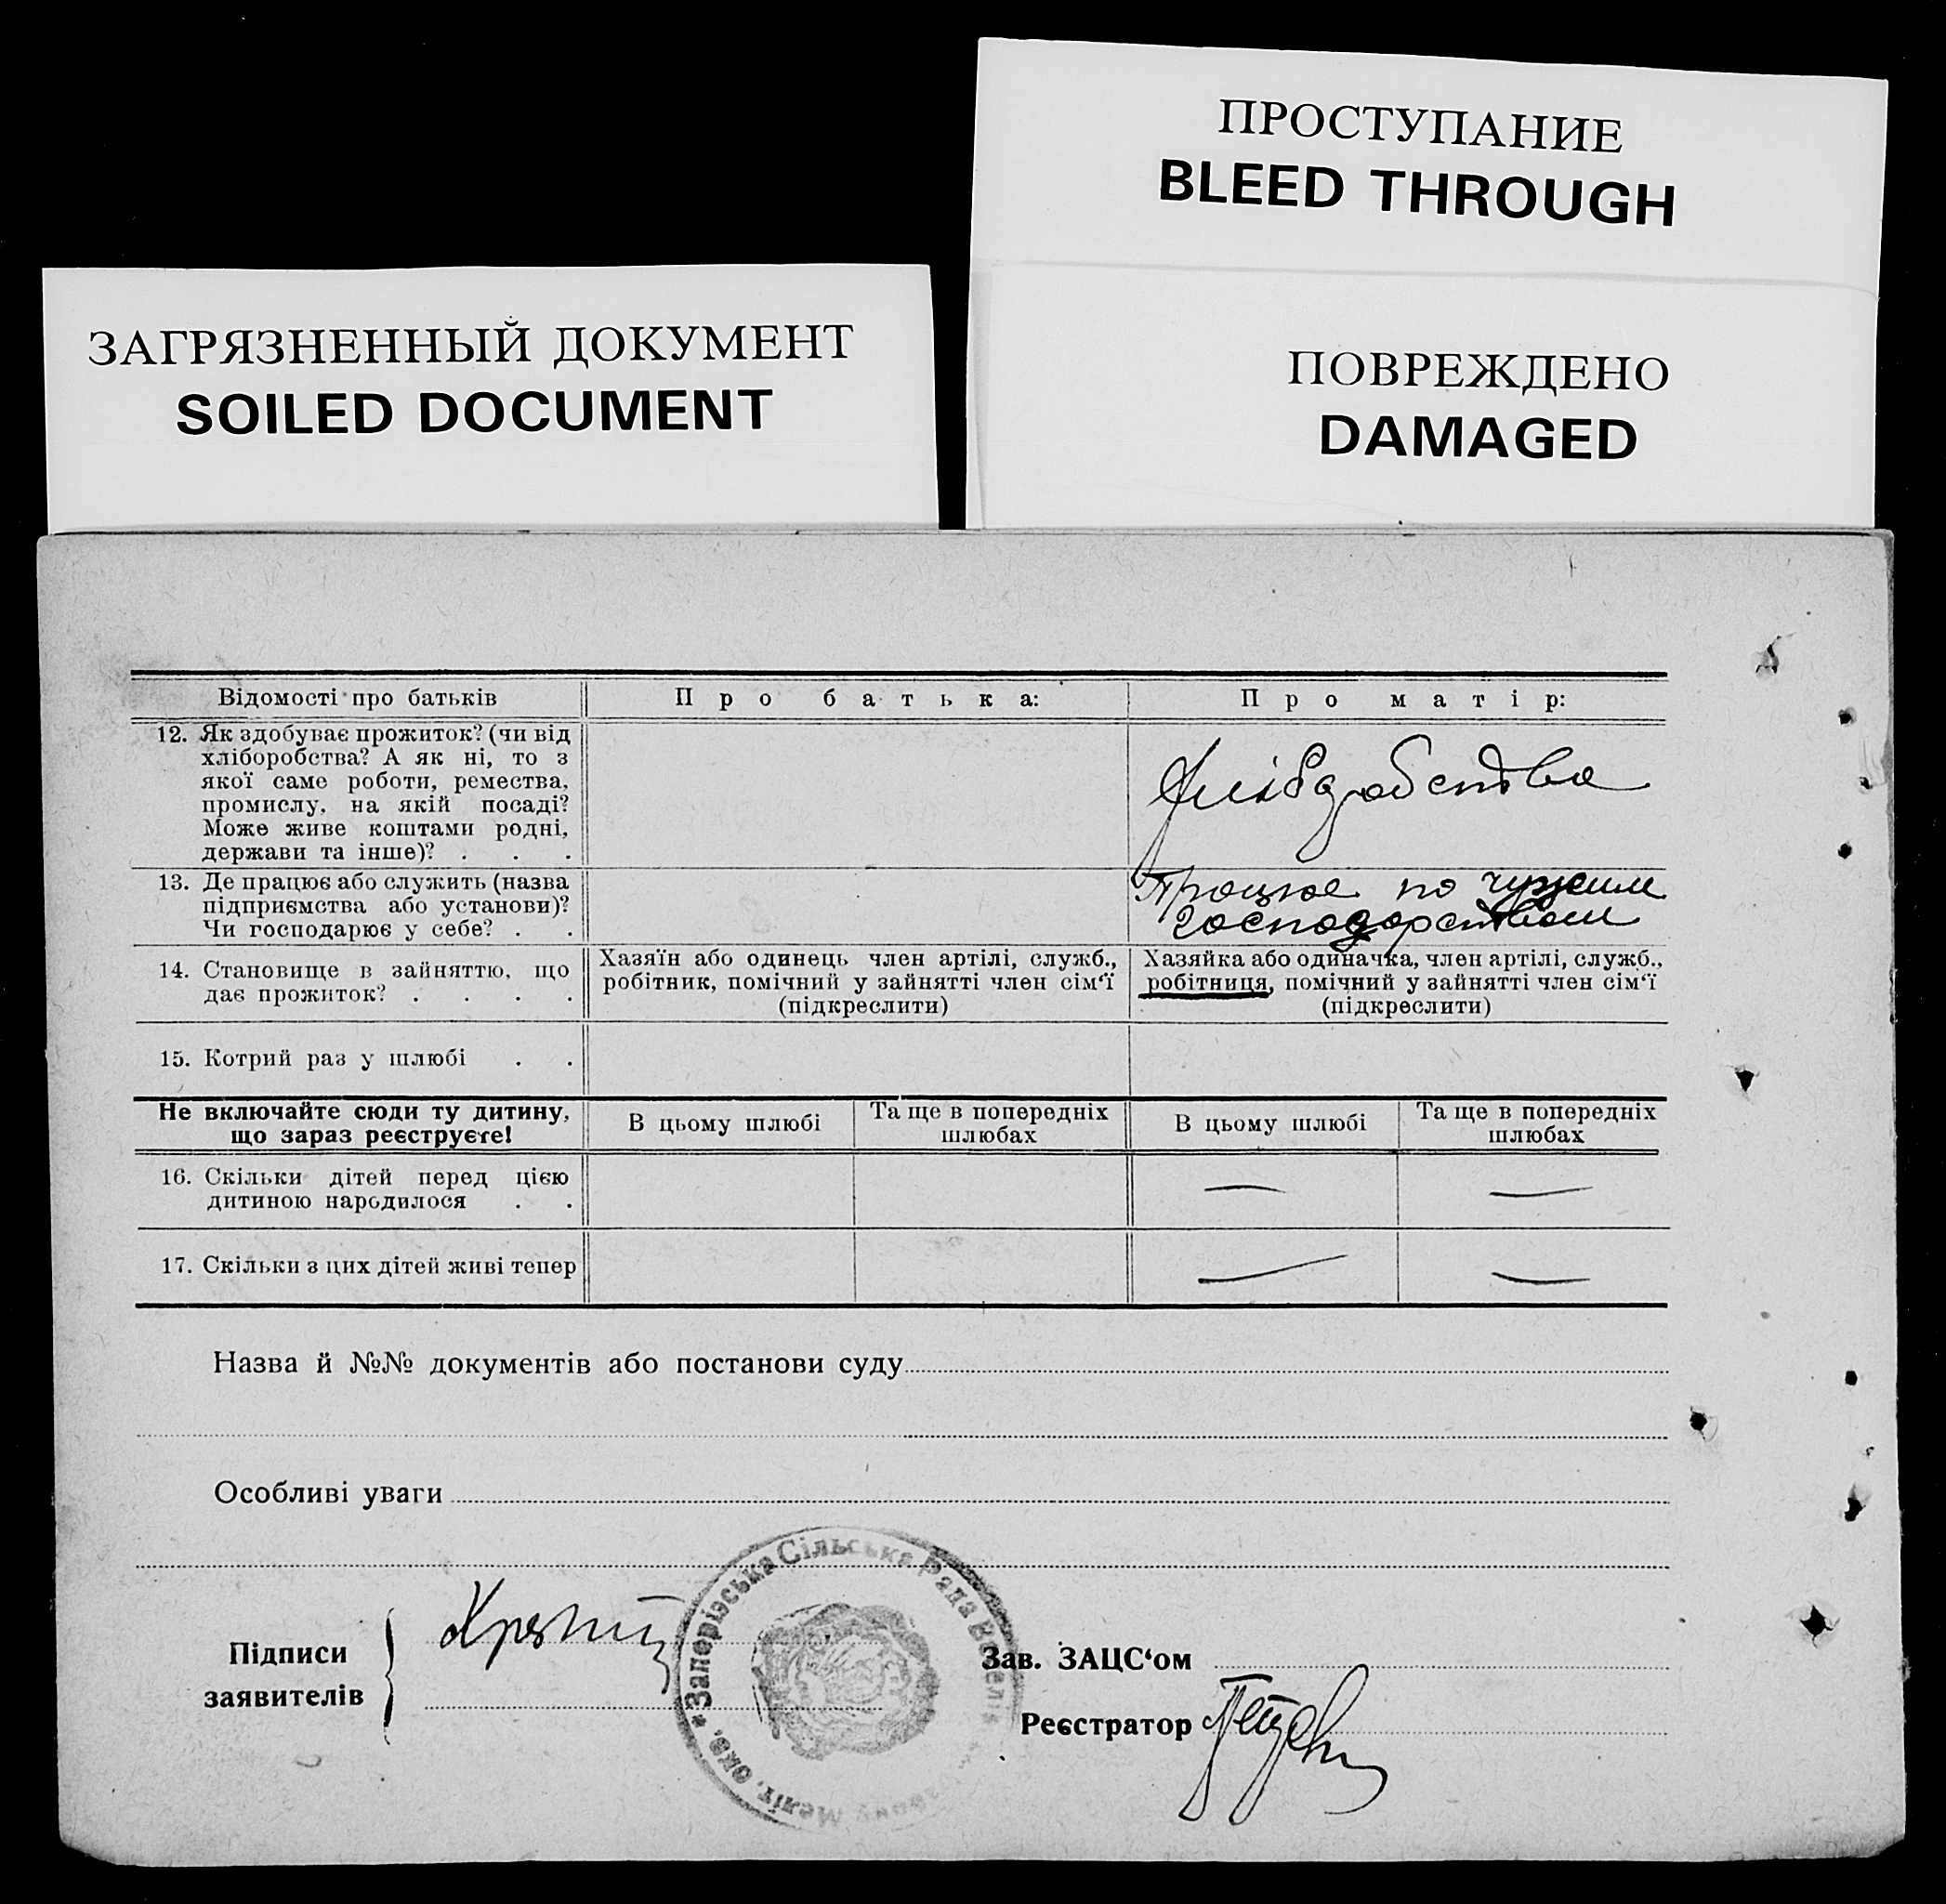 ПРОСТУПАНИЕ
BLEED THROUGH
ЗАГРЯЗНЕННЫЙ ДОКУМЕНТ
SOILED DOCUMENT
ПОВРЕЖДЕНО
DAMAGED
Відомості про батьків
Про батька:
Про матір:
12. Як здобуває прожиток? (чи від
хліборобства? А як ні, то з
якої саме роботи, ремества,
промислу, на якій посаді?
Може живе коштами родні,
держави та інше)? . . .
Хліборобство
13. Де працює або служить (назва
підприємства або установи)?
Чи господарює у себе? . .
Працює по чужим
господарствам
14. Становище в зайняттю, що
дає прожиток? . . . .
Хазяїн або одинець член артілі, служб.,
робітник, помічний у зайнятті член сім‘ї
(підкреслити)
Хазяйка або одиначка, член артілі, служб.,
робітниця, помічний у зайнятті член сім‘ї
(підкреслити)
15. Котрий раз у шлюбі . .
Не включайте сюди ту дитину,
що зараз реєструєте!
В цьому шлюбі
Та ще в попередніх
шлюбах
В цьому шлюбі
Та ще в попередніх
шлюбах
16. Скільки дітей перед цією
дитиною народилося . .
— —
17. Скільки з цих дітей живі тепер
— —
Назва й №№ документів або постанови суду
Особливі уваги
Запорізська Сільська Рада
Меліт. окр.
Підписи
заявителів
Зав. ЗАЦС‘ом
Реєстратор